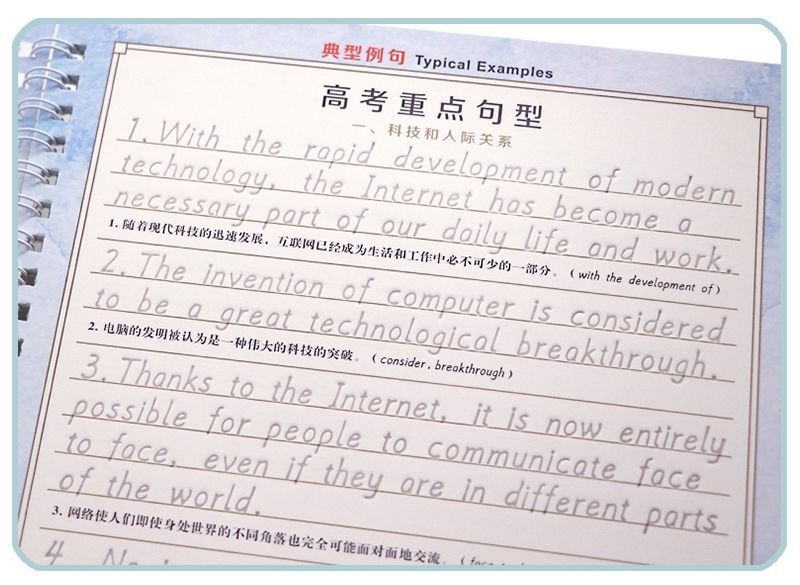 典型例句 Typical Examples
高考重点句型
一、科技和人际关系
1. With the rapid development of modern
technology, the Internet has become a
necessary part of our daily life and work.
1. 随着现代科技的迅速发展，互联网已经成为生活和工作中必不可少的一部分。(with the development of)
2. The invention of computer is considered
to be a great technological breakthrough.
2. 电脑的发明被认为是一种伟大的科技的突破。(consider, breakthrough)
3. Thanks to the Internet, it is now entirely
possible for people to communicate face
to face, even if they are in different parts
of the world.
3. 网络使人们即使身处世界的不同角落也完全可能面对面地交流。(face
4